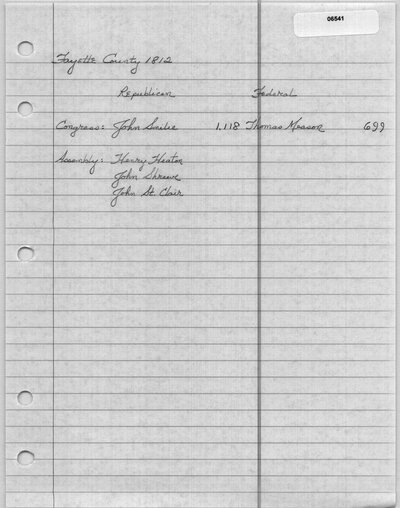 06541
Fayette County 1812
Republican Federal
Congress: John Smilie 1,118 Thomas Meason 699
Assembly: Henry Heaton
John Shreve
John St. Clair